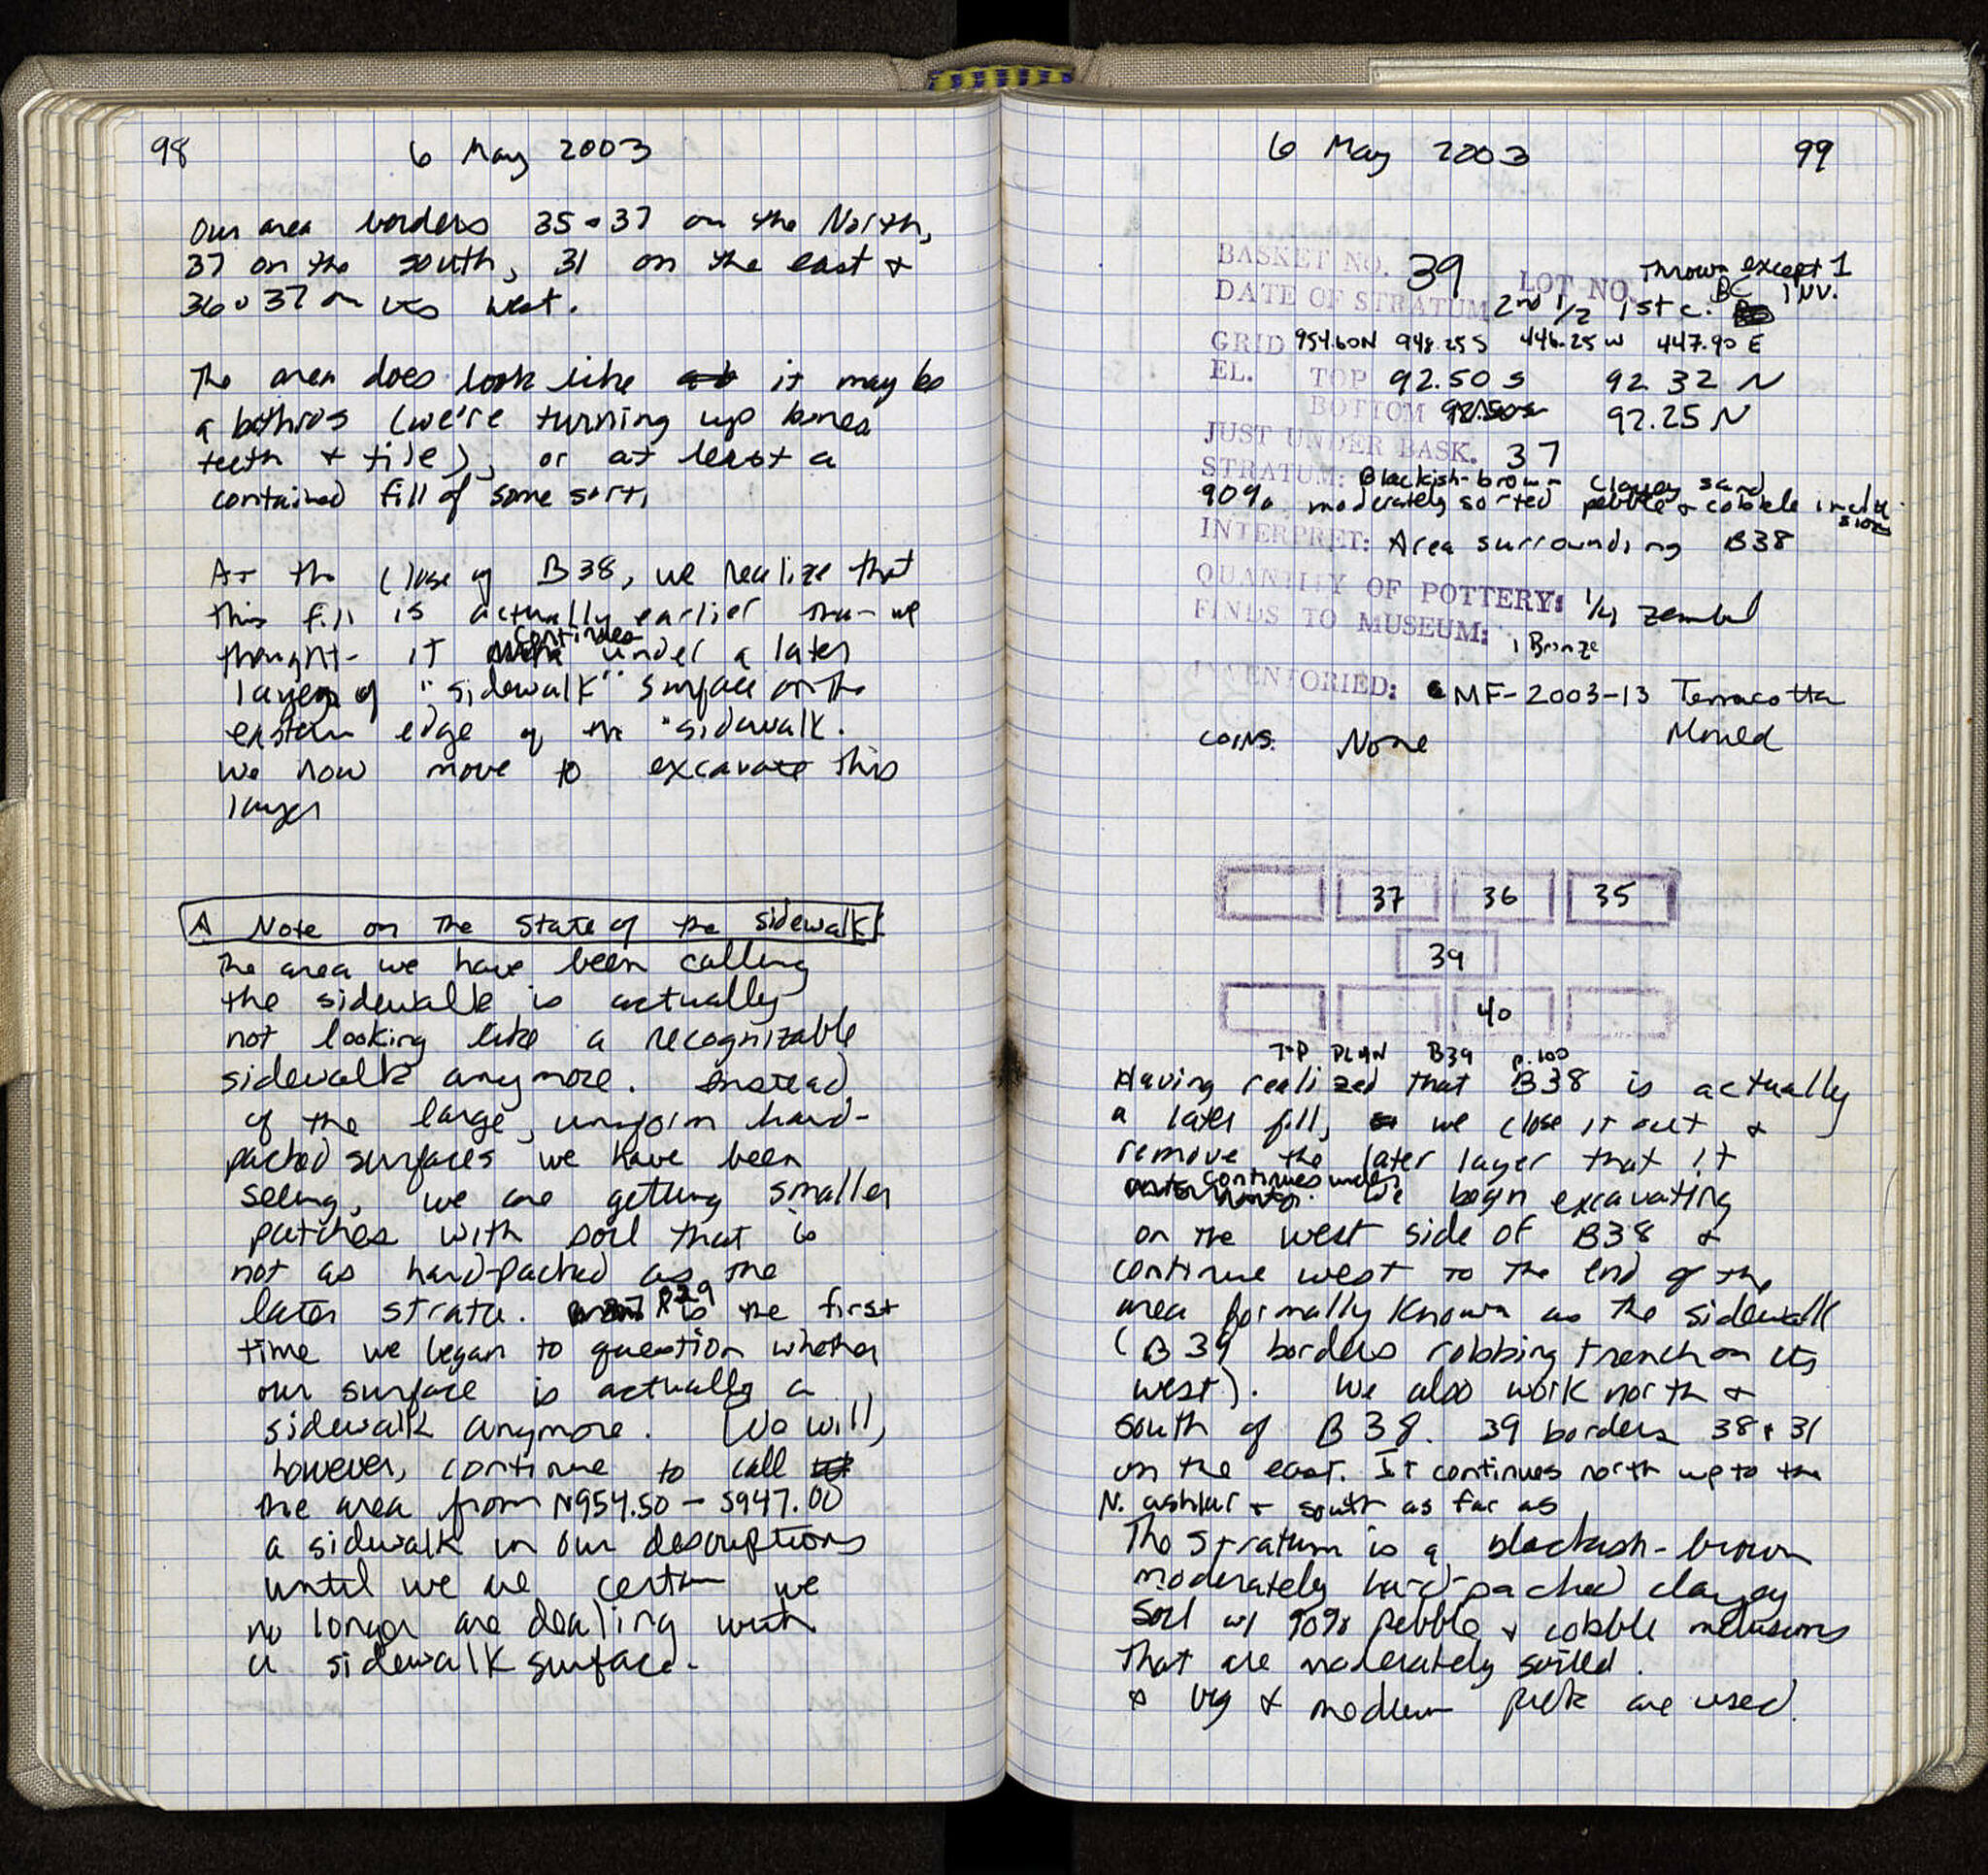 98
6 May 2003
Our area borders 35 + 37 on the North,
37 on the south, 31 on the east +
36 + 37 on its west.
The area does look like it may be
a bothros (we're turning up bones
teeth + tile), or at least a
contained fill of some sort.
At the close of B38, we realize that
this fill is actually earlier than we
thought - it continues under a later
layer of "sidewalk" surface on the
eastern edge of the "sidewalk.
We now move to excavate this
layer
A Note on the State of the sidewalk:
The area we have been calling
the sidewalk is actually
not looking like a recognizable
sidewalk anymore. Instead
of the large, uniform hard-
packed surfaces we have been
seeing, we are getting smaller
patches with soil that is
not as hard-packed as the
later strata. B29 is the first
time we began to question whether
our surface is actually a
sidewalk anymore. We will,
however, continue to call
the area from N954.50 - S947.00
a sidewalk in our descriptions
until we are certain we
no longer are dealing with
a sidewalk surface.
6 May 2003
99
BASKET NO. 39 LOT NO. Thrown except 1 INV.
DATE OF STRATUM 2nd 1/2 1st c. BC
GRID 954.60N 948.25S 446.25W 447.90E
EL. TOP 92.50 S 92.32 N
BOTTOM 92.50 S 92.25 N
JUST UNDER BASK. 37
STRATUM: Blackish-brown clayey sand
90% moderately sorted pebble + cobble inclusions
INTERPRET: Area surrounding B38
QUANTITY OF POTTERY: 1/4 zembil
FINDS TO MUSEUM: 1 Bronze
INVENTORIED: MF-2003-13 Terracotta
Mould
COINS: None
37 36 35
39
40
TOP PLAN B39 p.100
Having realized that B38 is actually
a later fill, we close it out +
remove the later layer that it
continues under. We begin excavating
on the west side of B38 +
continue west to the end of the
area formally known as the sidewalk
(B39 borders robbing trench on its
west). We also work north +
south of B38. 39 borders 38 + 31
on the east. It continues north up to the
N. ashlar + south as far as
The stratum is a blackish-brown
moderately hard-packed clayey
soil w/ 90% pebble + cobble inclusions
that are moderately sorted.
big + medium pick are used.